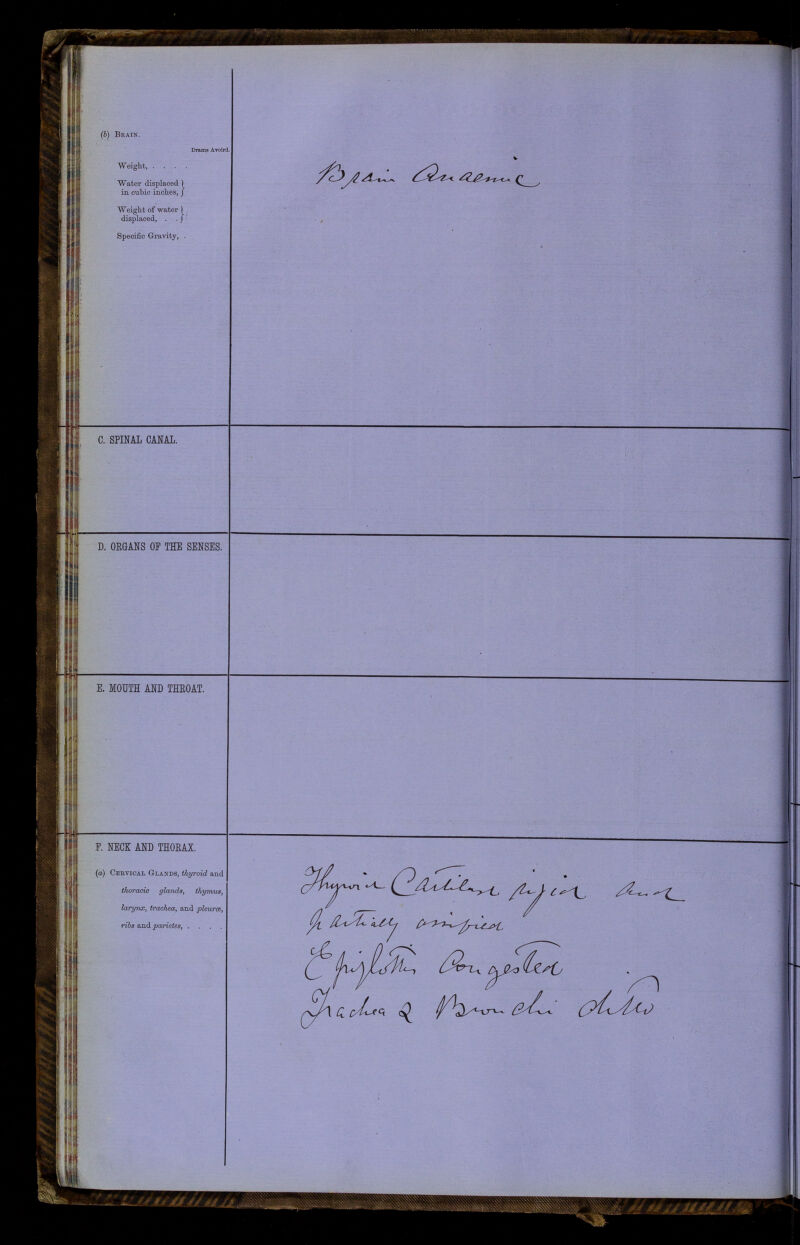 (b) BRAIN.
Drams Avoird.
Weight, . . . .
Water displaced }
in cubic inches, }
Weight of water }
displaced, . . }
Specific Gravity, .
Brain Anaemic
C. SPINAL CANAL.
D. ORGANS OF THE SENSES.
E. MOUTH AND THROAT.
F. NECK AND THORAX.
(a) CERVICAL GLANDS, thyroid and
thoracic glands, thymus,
larynx, trachea, and pleuræ,
ribs and parietes, . . . .
Thyroid Cartilage rigid and
partially ossified
Epiglottis Congested
Trachea & Bronchi ditto